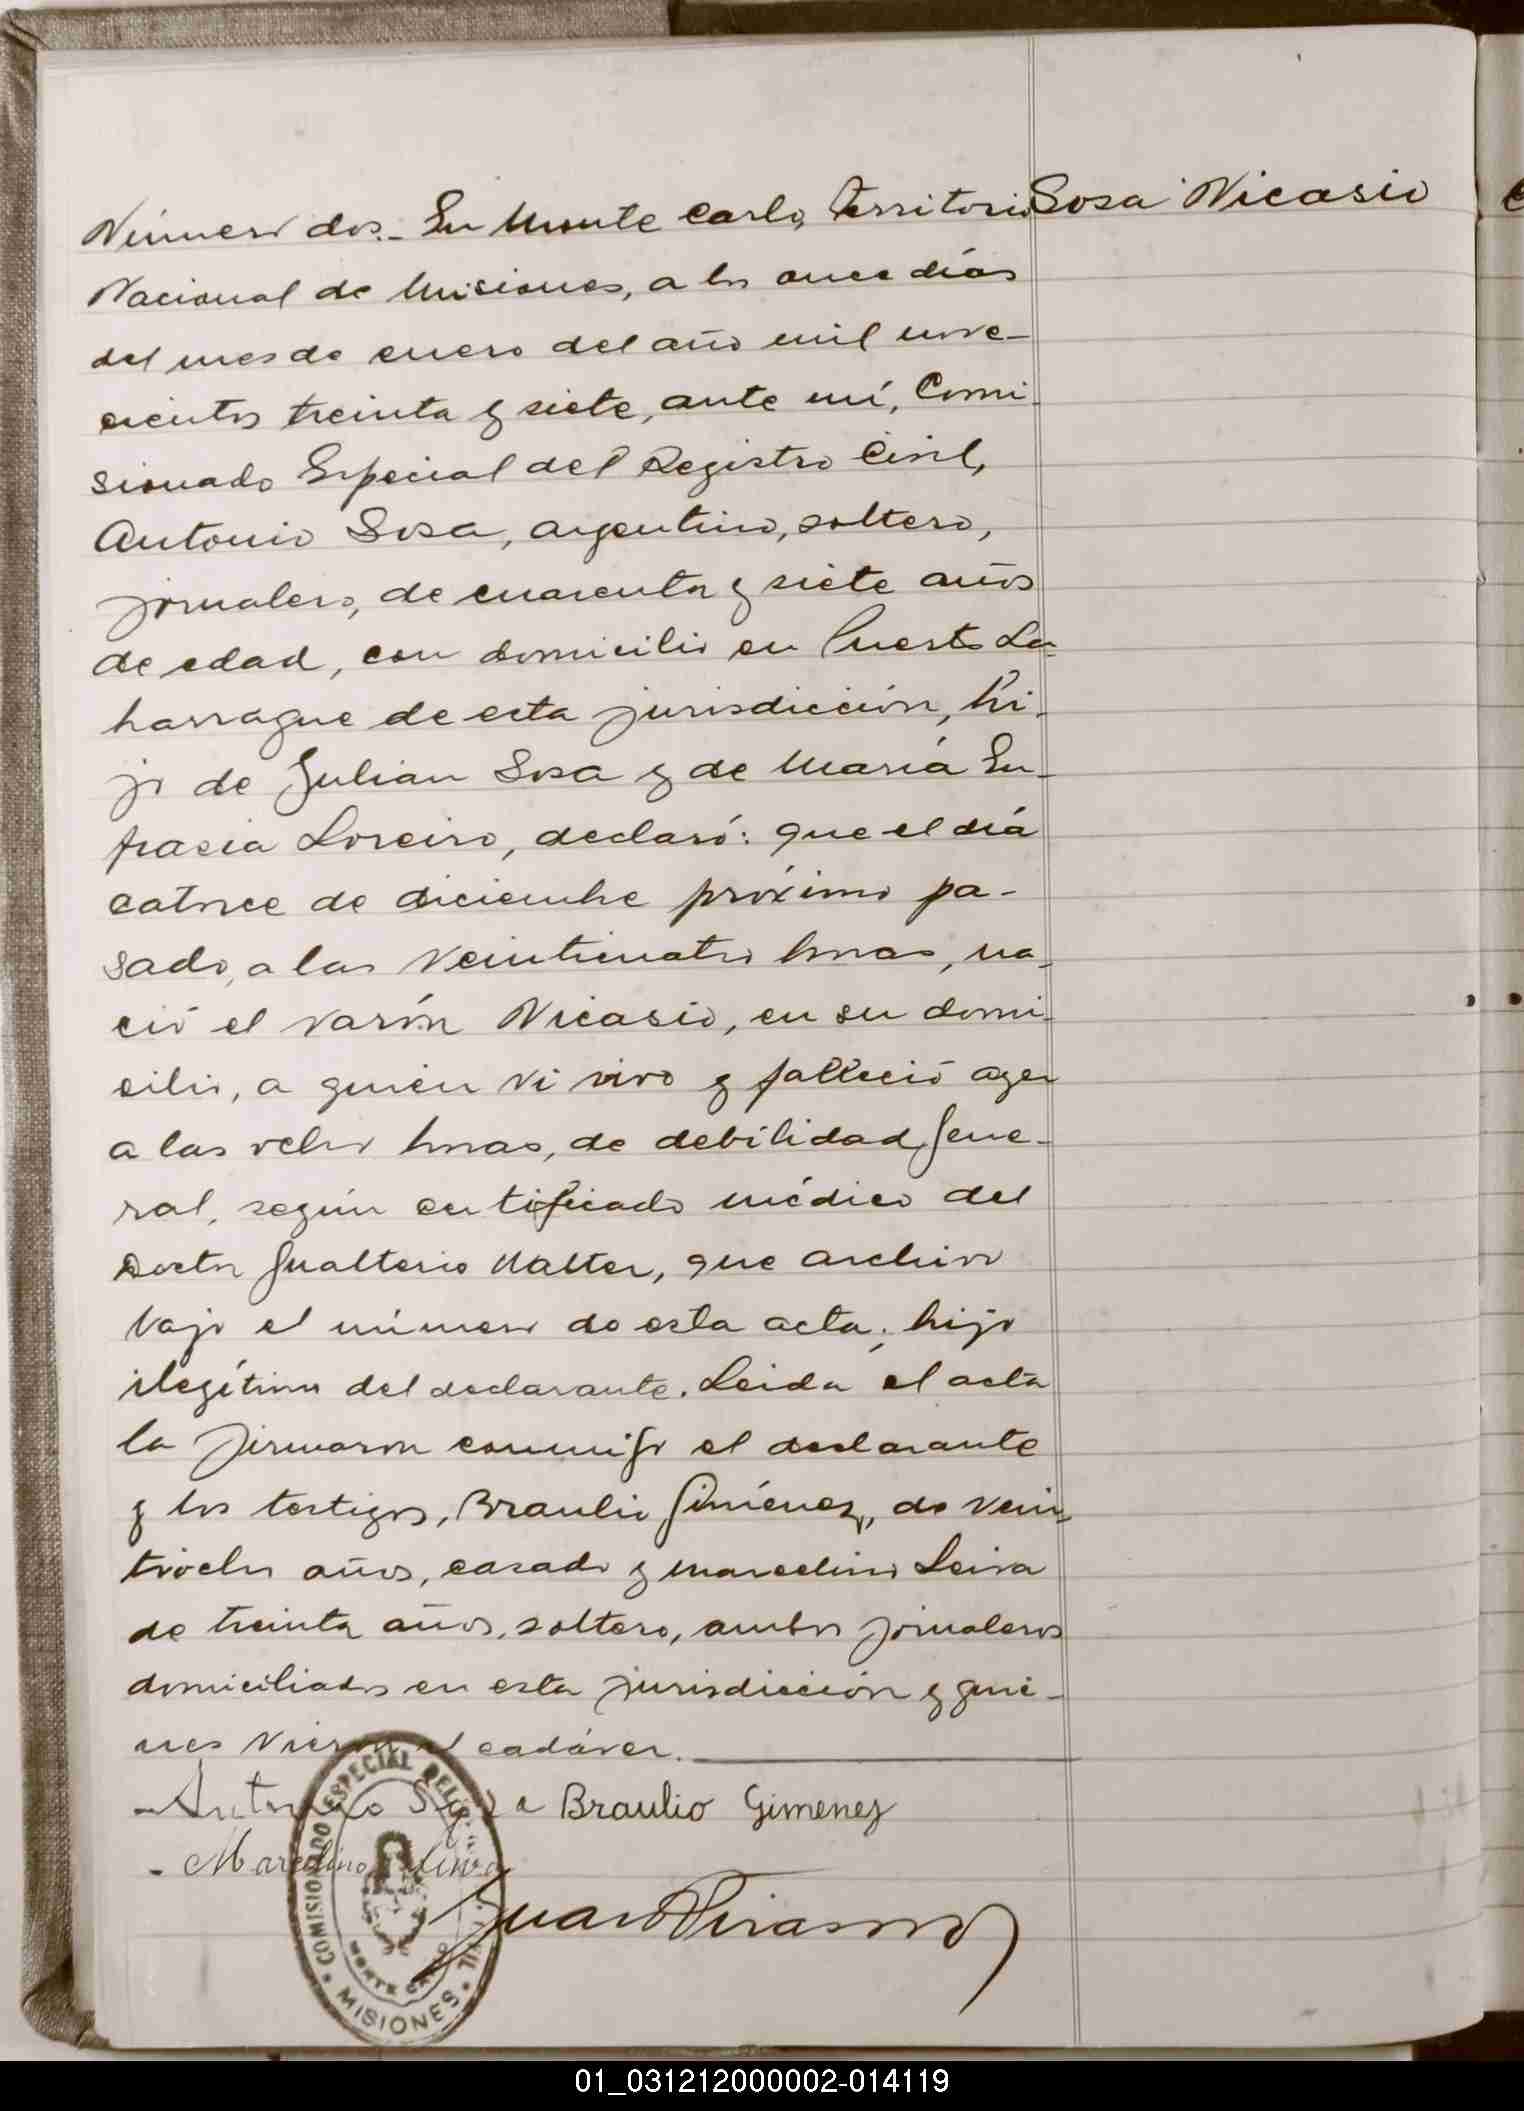 Número dos.- En Monte Carlo, Territorio Sosa Nicasio
Nacional de Misiones, a los once días
del mes de enero del año mil nove-
cientos treinta y siete, ante mí, Comi-
sionado Especial del Registro Civil,
Antonio Sosa, argentino, soltero,
jornalero, de cuarenta y siete años
de edad, con domicilio en Puerto La-
harrague de esta jurisdicción, hi-
jo de Julian Sosa y de María Eu-
fracia Loreiro, declaró: que el día
catorce de diciembre próximo pa-
sado, a las veinticuatro horas, na-
ció el varón Nicasio, en su domi-
cilio, a quién vi vivo y falleció ayer
a las ocho horas, de debilidad gene-
ral, según certificado médico del
Doctor Gualterio Walter, que archivo
bajo el número de esta acta; hijo
ilegítimo del declarante. Leida el acta
la firmaron conmigo el declarante
y los testigos, Braulio Giménez, de vein-
tiocho años, casado y Marcelino Leiva
de treinta años, soltero, ambos jornaleros
domiciliados en esta jurisdicción y quie-
nes vieron el cadáver.
- Antonio Sosa Braulio Gimenez
- Marcelino Leiva
Juan
COMISIONADO ESPECIAL DEL
MONTE CARLO
MISIONES
01_031212000002-014119